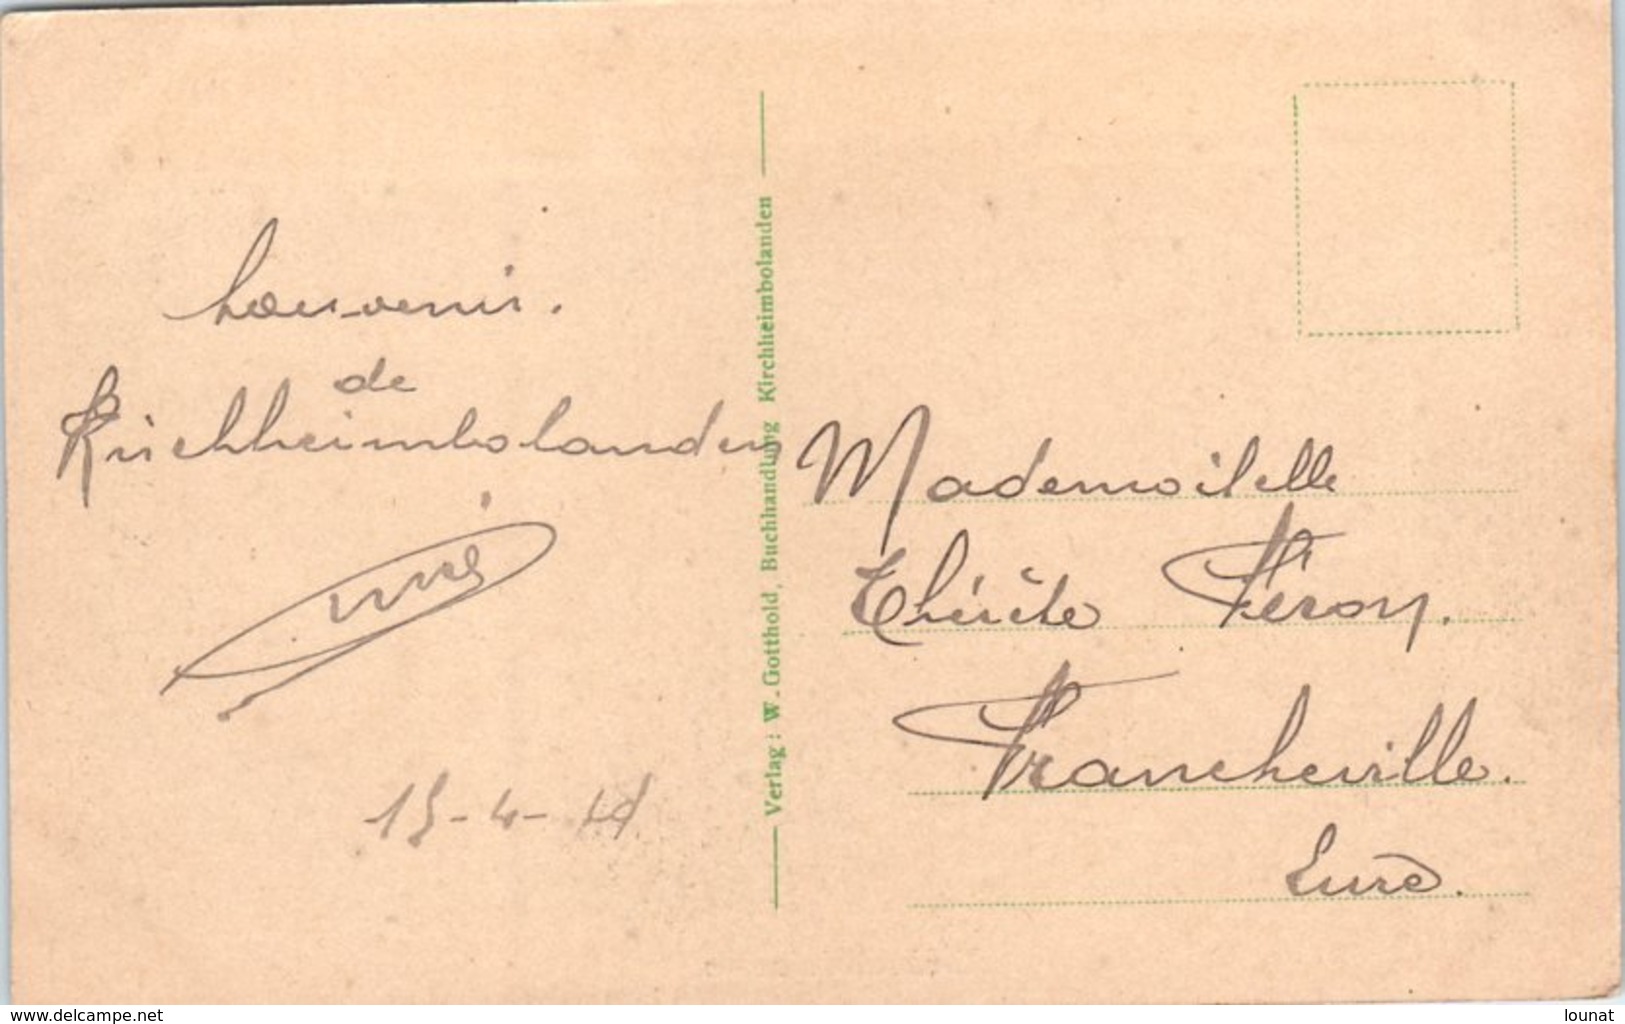 Souvenir.
de
Kirchheimbolanden
Verlag: W. Gotthold, Buchhandlung Kirchheimbolanden
Mademoiselle
Thérèse Féron.
Francheville.
Eure.
www.delcampe.net
lounat